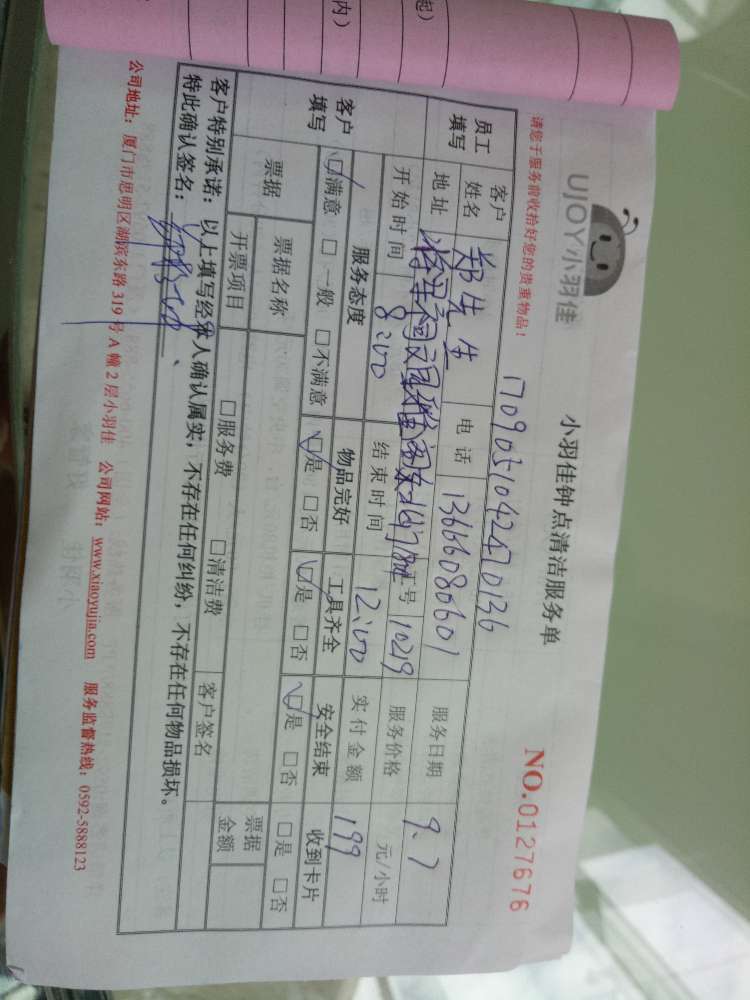 起)
内)
UJOY小羽佳
小羽佳钟点清洁服务单
请您于服务前收拾好您的贵重物品！
17090510424270136
NO.0127676
员工填写
客户姓名
郑先生
电话
13666080601
服务日期
9.7
地址
工号
1029
服务价格
元/小时
开始时间
8:00
结束时间
12:00
实付金额
199
客户填写
服务态度
物品完好
工具齐全
安全结束
收到卡片
□满意 □一般 □不满意
□是 □否
□是 □否
□是 □否
□是 □否
票据
票据名称
票据金额
开票项目
□服务费 □清洁费
客户签名
客户特别承诺：以上填写经本人确认属实，不存在任何纠纷，不存在任何物品损坏。
特此确认签名：
公司地址：厦门市思明区湖滨东路319号A幢2层小羽佳 公司网站：www.xiaoyujia.com 服务监督热线：0592-5888123